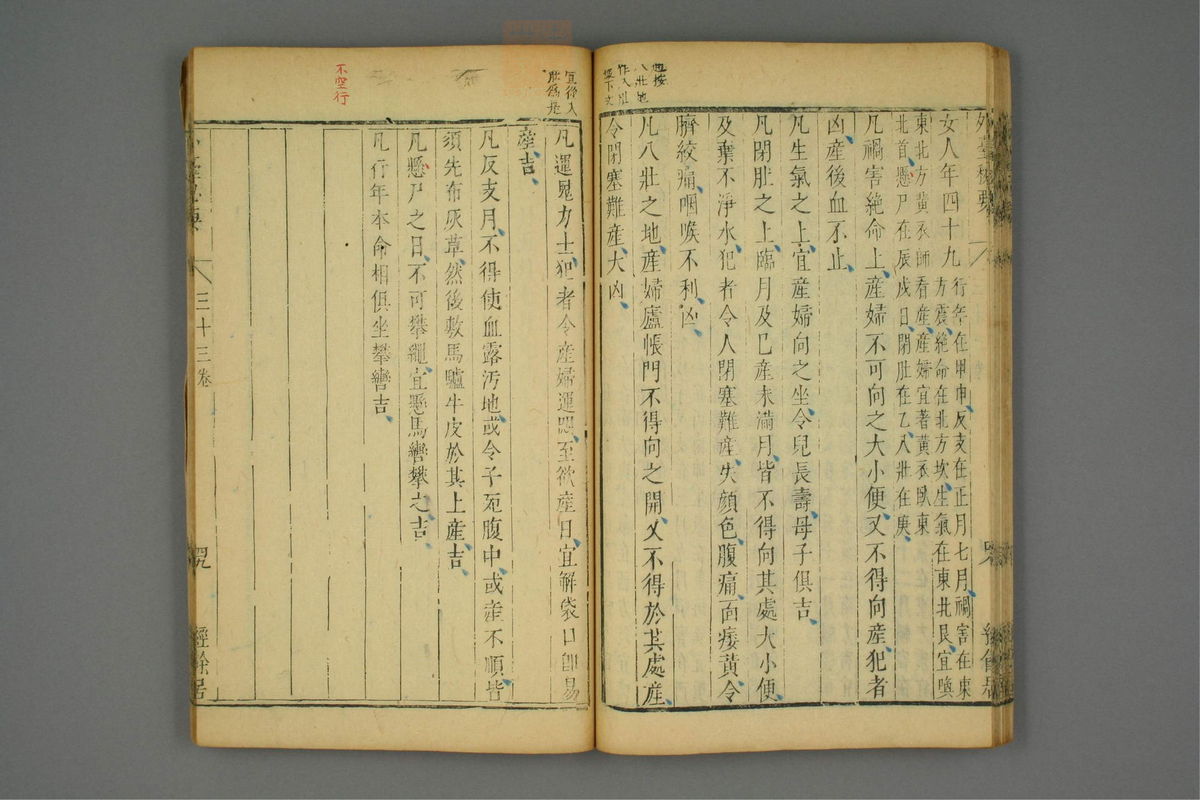 外臺秘要
女人年四十九
行年在甲申反支在正月七月禍害在東
方震絶命在北方坎生氣在東北艮宜喚
東北方黃衣師看産産婦宜著黃衣臥東
北首懸尸在辰戌日閉肚在乙八壯在庚
凡禍害絶命上産婦不可向之大小便又不得向産犯者
凶産後血不止
凡生氣之上宜産婦向之坐令兒長壽母子俱吉
凡閉肚之上臨月及已産未滿月皆不得向其處大小便
及棄不淨水犯者令人閉塞難産失顔色腹痛面痿黃令
臍絞痛咽喉不利凶
凡八壯之地産婦廬帳門不得向之開又不得於其處産
令閉塞難産大凶
凡運鬼力士犯者令産婦運悶至欲産日宜解袋口即易
産吉
凡反支月不得使血露汚地或令子死腹中或産不順皆
須先布灰草然後敷馬驢牛皮於其上産吉
凡懸尸之日不可攀繩宜懸馬轡攀之吉
凡行年本命相俱坐攀轡吉
三十三卷
經餘居
不空行